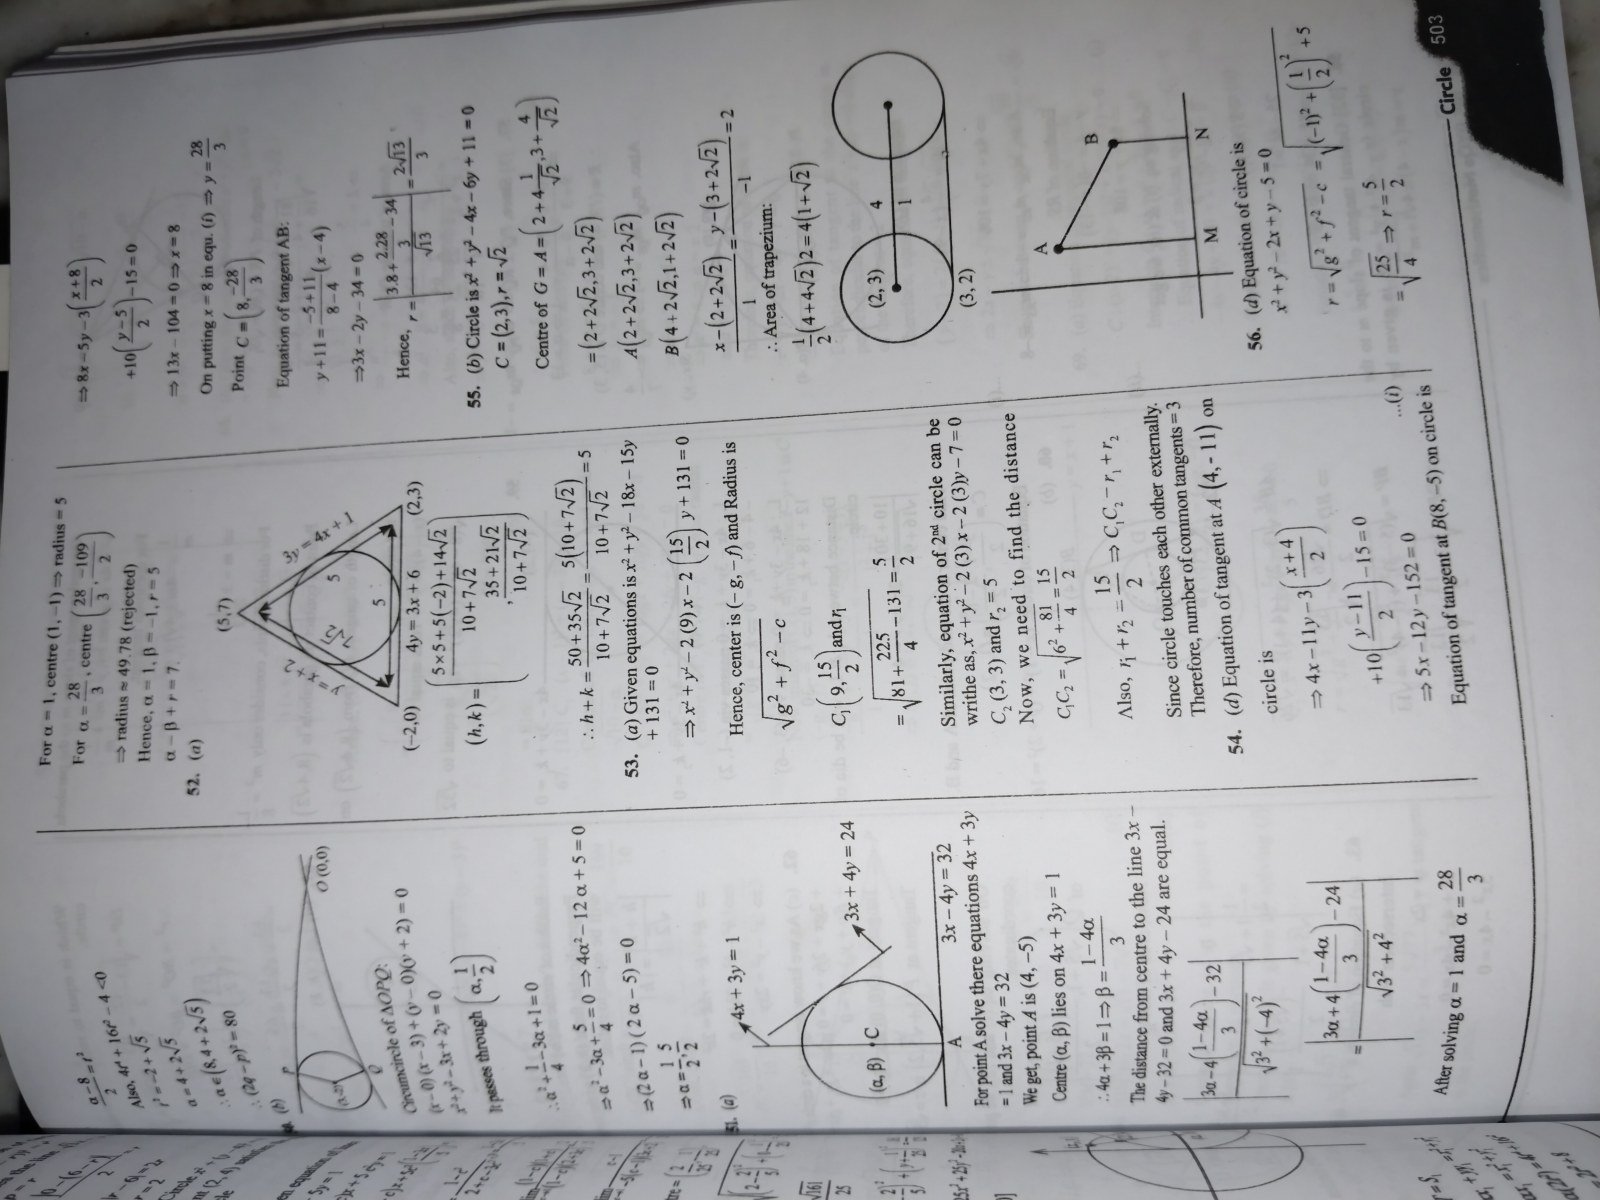 α−8/2 = r²
Also, 4r² + 16r² − 4 < 0
r² = −2 + √5
α = 4 + 2√5
∴ α ∈ (8, 4 + 2√5)
∴ (2q − p)² = 80
(b)
P
Q
O (0,0)
Circumcircle of ΔOPQ:
(x − 0)(x − 3) + (y − 0)(y + 2) = 0
x² + y² − 3x + 2y = 0
It passes through (α, 1/2)
∴ α² + 1/4 − 3α + 1 = 0
⇒ α² − 3α + 5/4 = 0 ⇒ 4α² − 12α + 5 = 0
⇒ (2α − 1)(2α − 5) = 0
⇒ α = 1/2, 5/2
51. (a)
4x + 3y = 1
3x + 4y = 24
(α, β) C
A
3x − 4y = 32
For point A solve there equations 4x + 3y
= 1 and 3x − 4y = 32
We get, point A is (4, −5)
Centre (α, β) lies on 4x + 3y = 1
∴ 4α + 3β = 1 ⇒ β = 1−4α/3
The distance from centre to the line 3x −
4y − 32 = 0 and 3x + 4y − 24 are equal.
|3α − 4(1−4α/3) − 32| / √(3² + (−4)²)
= |3α + 4(1−4α/3) − 24| / √(3² + 4²)
After solving α = 1 and α = 28/3
For α = 1, centre (1, −1) ⇒ radius = 5
For α = 28/3, centre (28/3, −109/2)
⇒ radius ≈ 49.78 (rejected)
Hence, α = 1, β = −1, r = 5
α − β + r = 7.
52. (a)
(5,7)
y = x + 2
3y = 4x + 1
7√2
5
5
(−2,0)
4y = 3x + 6
(2,3)
(h, k) = (5×5+5(−2)+14√2 / 10+7√2
, 35+21√2 / 10+7√2)
∴ h + k = 50+35√2 / 10+7√2 = 5(10+7√2) / 10+7√2 = 5
53. (a) Given equations is x² + y² − 18x − 15y
+ 131 = 0
⇒ x² + y² − 2(9)x − 2(15/2)y + 131 = 0
Hence, center is (−g, −f) and Radius is
√(g² + f² − c)
C₁(9, 15/2) and r₁
= √(81 + 225/4 − 131) = 5/2
Similarly, equation of 2nd circle can be
writhe as, x² + y² − 2(3)x − 2(3)y − 7 = 0
C₂ (3, 3) and r₂ = 5
Now, we need to find the distance
C₁C₂ = √(6² + 81/4) = 15/2
Also, r₁ + r₂ = 15/2 ⇒ C₁C₂ − r₁ + r₂
Since circle touches each other externally.
Therefore, number of common tangents = 3
54. (d) Equation of tangent at A (4, - 11) on
circle is
⇒ 4x − 11y − 3(x+4/2)
+10(y−11/2) − 15 = 0
⇒ 5x − 12y − 152 = 0 ...(i)
Equation of tangent at B(8, −5) on circle is
⇒ 8x − 5y − 3(x+8/2)
+10(y−5/2) − 15 = 0
⇒ 13x − 104 = 0 ⇒ x = 8
On putting x = 8 in equ. (i) ⇒ y = 28/3
Point C = (8, −28/3)
Equation of tangent AB:
y + 11 = −5+11/8−4 (x − 4)
⇒ 3x − 2y − 34 = 0
Hence, r = |3.8 + 2.28/3 − 34| / √13 = 2√13/3
55. (b) Circle is x² + y² − 4x − 6y + 11 = 0
C = (2,3), r = √2
Centre of G = A = (2 + 4 1/√2, 3 + 4/√2)
= (2 + 2√2, 3 + 2√2)
A(2 + 2√2, 3 + 2√2)
B(4 + 2√2, 1 + 2√2)
x − (2 + 2√2) / 1 = y − (3 + 2√2) / −1 = 2
∴ Area of trapezium:
1/2(4 + 4√2)2 = 4(1 + √2)
(2, 3)
4
1
(3, 2)
A
B
M
N
56. (d) Equation of circle is
x² + y² − 2x + y − 5 = 0
r = √(g² + f² − c) = √((−1)² + (1/2)² + 5)
= √(25/4) ⇒ r = 5/2
Circle 503